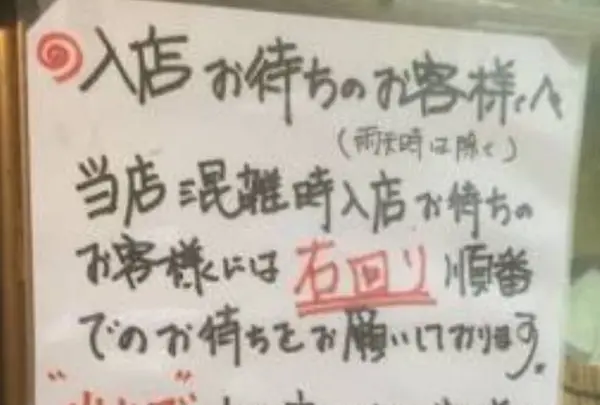 入店お待ちのお客様へ
(雨天時は除く)
当店混雑時入店お待ちの
お客様には右回り順番
でのお待ちをお願いしております。